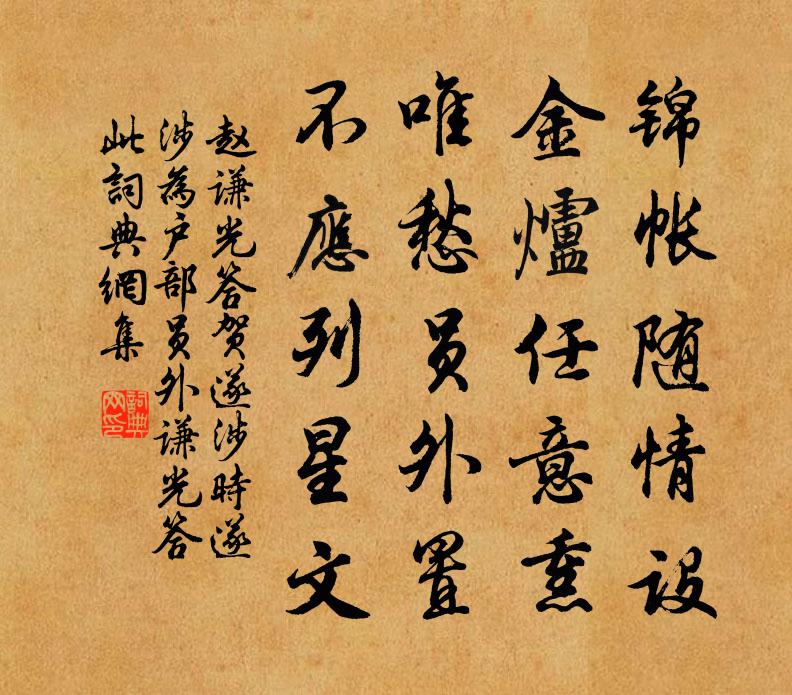 锦帐随情设
金爐任意熏
唯愁员外置
不應列星文
赵谦光答贺遂涉時遂
涉為户部员外谦光答
此詞典網集
詞典網印